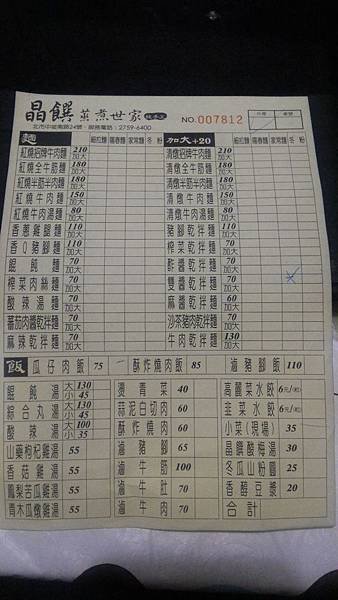 晶饌 蒸煮世家
北市中坡南路24號．服務電話：2759-6400
NO.007812
麵 細拉麵 陽春麵 家常麵 冬粉 加大+20 細拉麵 陽春麵 家常麵 冬粉
紅燒招牌牛肉麵 210 加大 清燉招牌牛肉麵 210
紅燒全牛筋麵 180 加大 清燉全牛筋麵 180
紅燒半筋半肉麵 180 加大 清燉半筋半肉麵 180
紅燒牛肉麵 150 加大 清燉牛肉麵 150
紅燒牛肉湯麵 80 加大 清燉牛肉湯麵 80
香蔥雞腳麵 110 加大 豬腳乾拌麵 110
香Q豬腳麵 110 加大 榨菜乾拌麵 70
餛飩麵 70 加大 炸醬乾拌麵 70
榨菜肉絲麵 70 加大 雙醬乾拌麵 70
酸辣湯麵 70 加大 麻醬乾拌麵 60
蕃茄肉醬乾拌麵 70 加大 沙茶豬肉乾拌麵 70
麻辣乾拌麵 70 加大 牛肉乾拌麵 130
飯 瓜仔肉飯 75 酥炸燒肉飯 85 滷豬腳飯 110
餛飩湯 大130 小45 燙青菜 40 高麗菜水餃 6元/粒
綜合丸湯 大130 小45 蒜泥白切肉 60 韭菜水餃 6元/粒
酸辣湯 大100 小35 酥炸燒肉 60 小菜(現場) 35
山藥枸杞雞湯 55 滷豬腳 65 晶饌酸梅湯 30
香菇雞湯 55 滷牛筋 100 冬瓜山粉圓 25
鳳梨苦瓜雞湯 55 滷牛肚 70 香醇豆漿 20
青木瓜燉雞湯 55 滷牛肉 70 合計